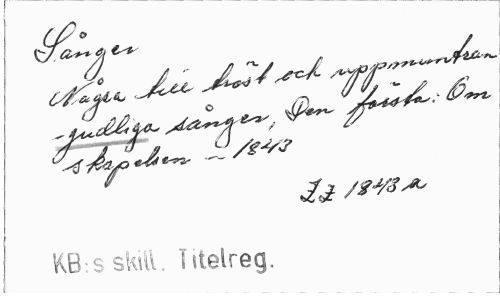 Sånger
Några till tröst och uppmuntran
-gudliga sånger, Den första: Om
skapelsen – 1843
ZZ 1843 a
KB:s skill. Titelreg.